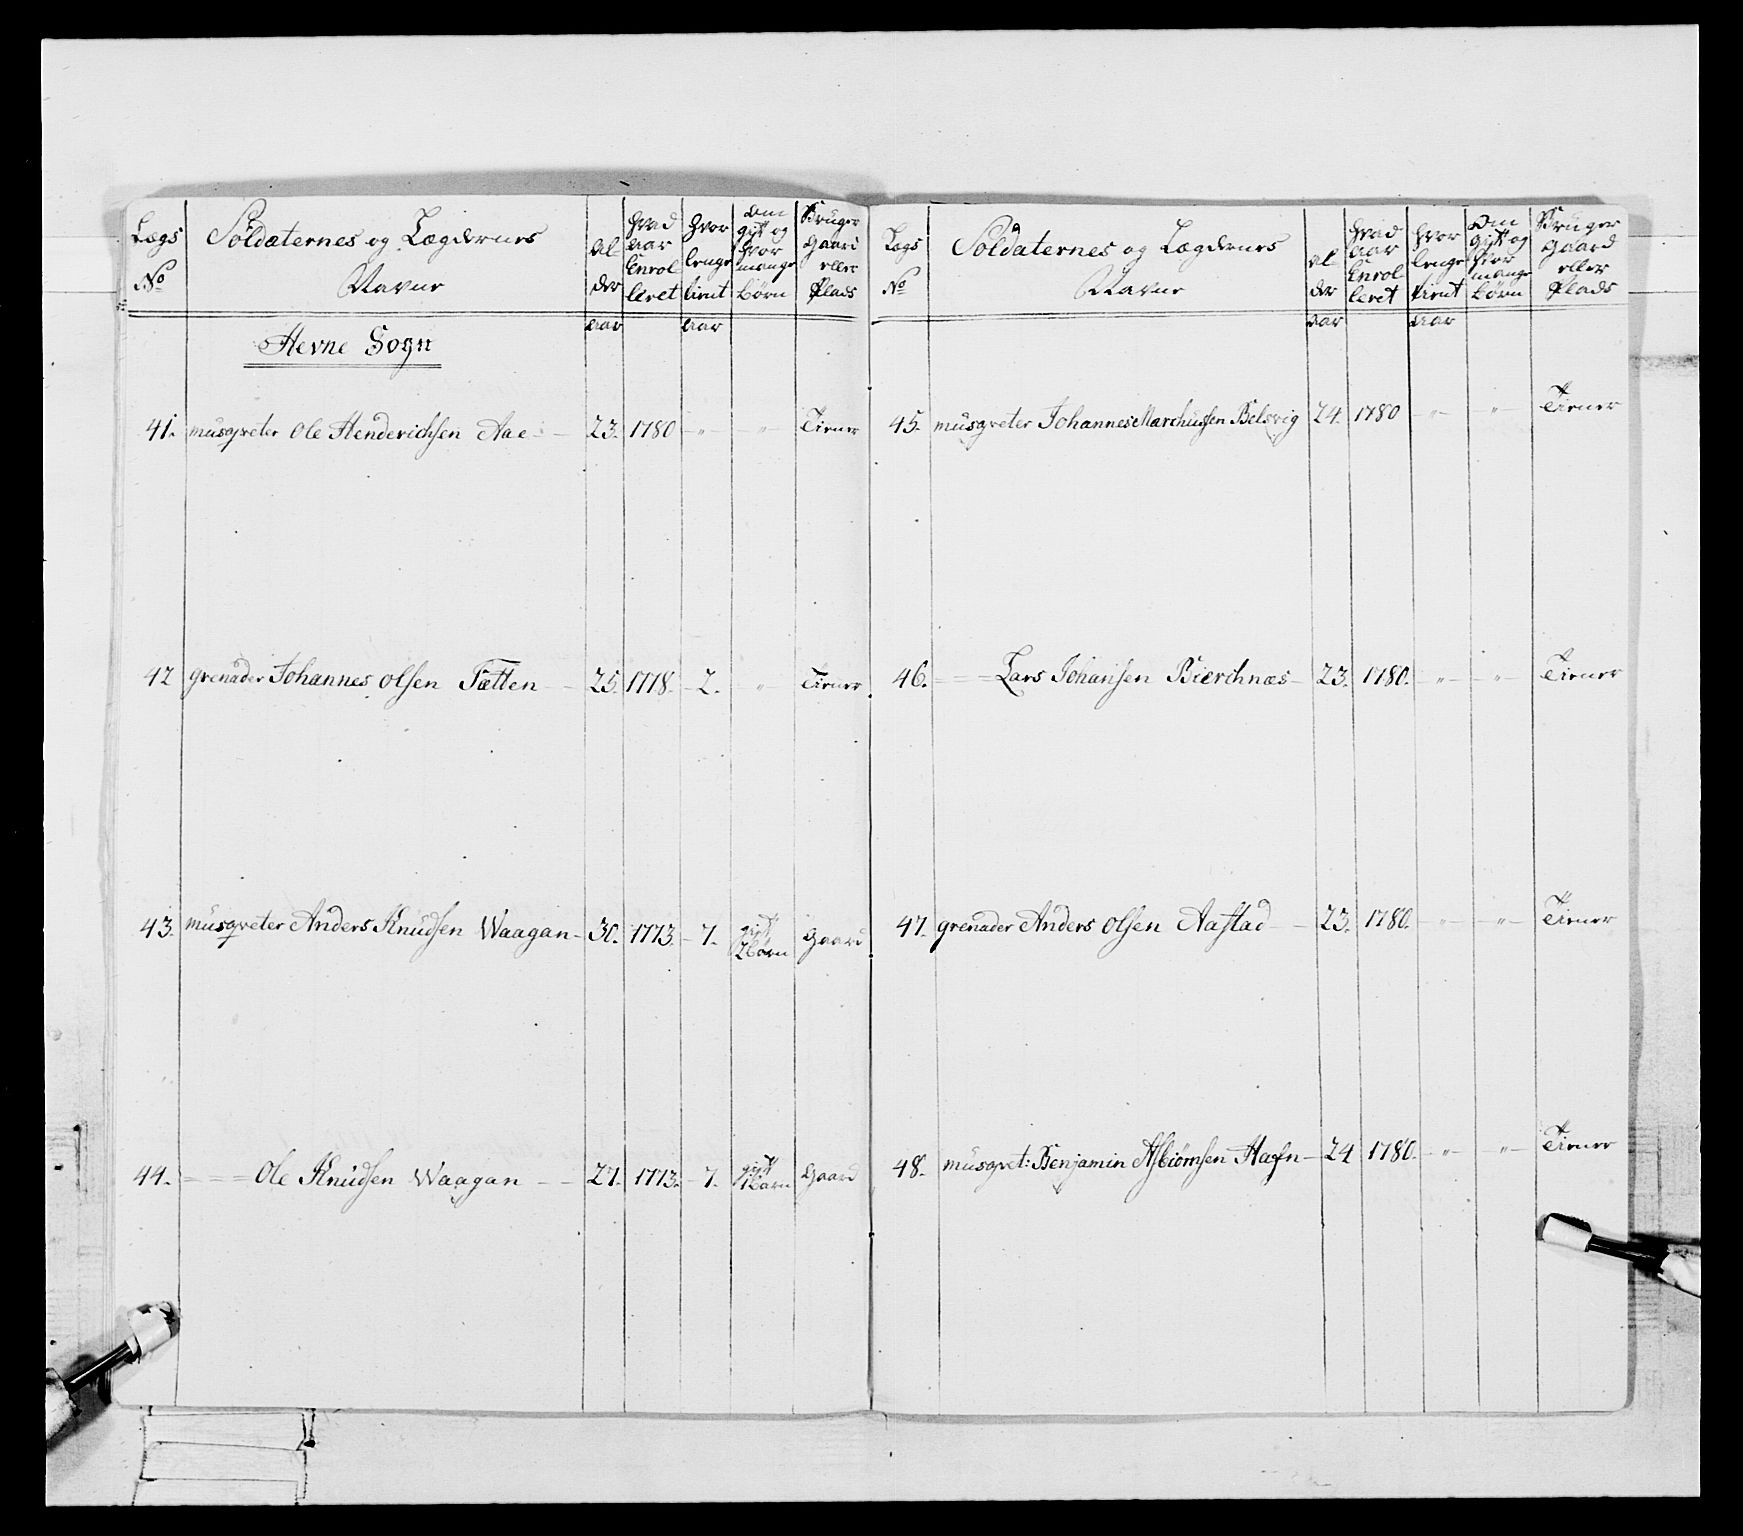 Lægs No | Soldaternes og Lægdernes Navne | Al der aar | hvad aar Enrol leret | hvor lenge tient aar | om gift og hvor mange børn | Bruger gaard eller Plads
Hevne Sogn
41. musqveter Ole Henderichsen Aae — 23. 1780 — „ — „ Tiener
42 grenader Johannes Olsen Tætten — 25. 1778. — 2. „ Tiener
43. musqveter Anders Knudsen Waagan — 30. 1773. — 7. gift 2 børn Gaard
44. = = = Ole Knudsen Waagan — — 27. 1773. — 7. gift 1 barn Gaard
Lægs No | Soldaternes og Lægdernes Navne | al der aar | hvad aar Enrol leret | hvor lenge tient aar | om gift og hvor mange børn | Bruger gaard eller Plads
45. musqveter Johannes Marchussen Belsvig 24. 1780 — „ — „ Tiener
46. = = = Lars Johansen Bierchnæs — 23. 1780. — „ — „ — Tiener
47. grenader Anders Olsen Aastad — 23. 1780. — „ — „ — Tiener
48. musqvet: Benjamin Asbiørnsen Hafn — 24 1780. — „ — „ — Tiener